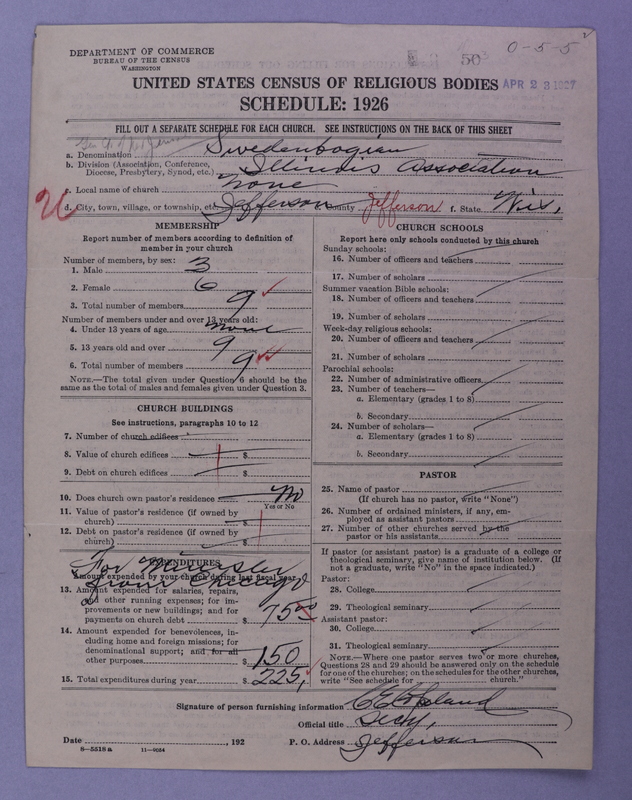 DEPARTMENT OF COMMERCE
BUREAU OF THE CENSUS
WASHINGTON
50
0-5-5
UNITED STATES CENSUS OF RELIGIOUS BODIES
APR 23 1927
SCHEDULE: 1926
FILL OUT A SEPARATE SCHEDULE FOR EACH CHURCH. SEE INSTRUCTIONS ON THE BACK OF THIS SHEET
a. Denomination Swedenbogian
b. Division (Association, Conference, Diocese, Presbytery, Synod, etc.) Illinois Association
c. Local name of church none
d. City, town, village, or township, etc. Jefferson e. County Jefferson f. State Wis.
MEMBERSHIP
Report number of members according to definition of
member in your church
Number of members, by sex:
1. Male 3
2. Female 6
3. Total number of members 9
Number of members under and over 13 years old:
4. Under 13 years of age none
5. 13 years old and over 9
6. Total number of members 9
NOTE.—The total given under Question 6 should be the
same as the total of males and females given under Question 3.
CHURCH BUILDINGS
See instructions, paragraphs 10 to 12
7. Number of church edifices
8. Value of church edifices $
9. Debt on church edifices $
10. Does church own pastor's residence No
Yes or No
11. Value of pastor's residence (if owned by
church) $
12. Debt on pastor's residence (if owned by
church) $
EXPENDITURES
For Minister
from Chicago
Amount expended by your church during last fiscal year
13. Amount expended for salaries, repairs,
and other running expenses; for im-
provements or new buildings; and for
payments on church debt $ 75
14. Amount expended for benevolences, in-
cluding home and foreign missions; for
denominational support; and for all
other purposes $ 150
15. Total expenditures during year $ 225
CHURCH SCHOOLS
Report here only schools conducted by this church
Sunday schools:
16. Number of officers and teachers
17. Number of scholars
Summer vacation Bible schools:
18. Number of officers and teachers
19. Number of scholars
Week-day religious schools:
20. Number of officers and teachers
21. Number of scholars
Parochial schools:
22. Number of administrative officers
23. Number of teachers—
a. Elementary (grades 1 to 8)
b. Secondary
24. Number of scholars—
a. Elementary (grades 1 to 8)
b. Secondary
PASTOR
25. Name of pastor
(If church has no pastor, write "None")
26. Number of ordained ministers, if any, em-
ployed as assistant pastors
27. Number of other churches served by the
pastor or his assistants
If pastor (or assistant pastor) is a graduate of a college or
theological seminary, give name of institution below. (If
not a graduate, write "No" in the space indicated.)
Pastor:
28. College
29. Theological seminary
Assistant pastor:
30. College
31. Theological seminary
NOTE.—Where one pastor serves two or more churches,
Questions 28 and 29 should be answered only on the schedule
for one of the churches; on the schedules for the other churches,
write "See schedule for church."
Signature of person furnishing information
Official title Secy,
Date , 192 P. O. Address Jefferson
8—5518 a 11—9064